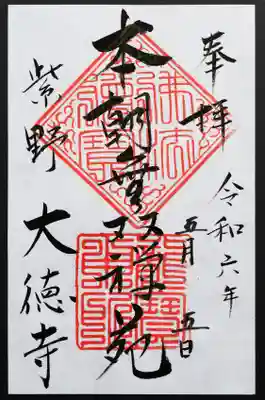 奉拝
令和六年
五月五日
本朝無双禅苑
紫野
大徳寺